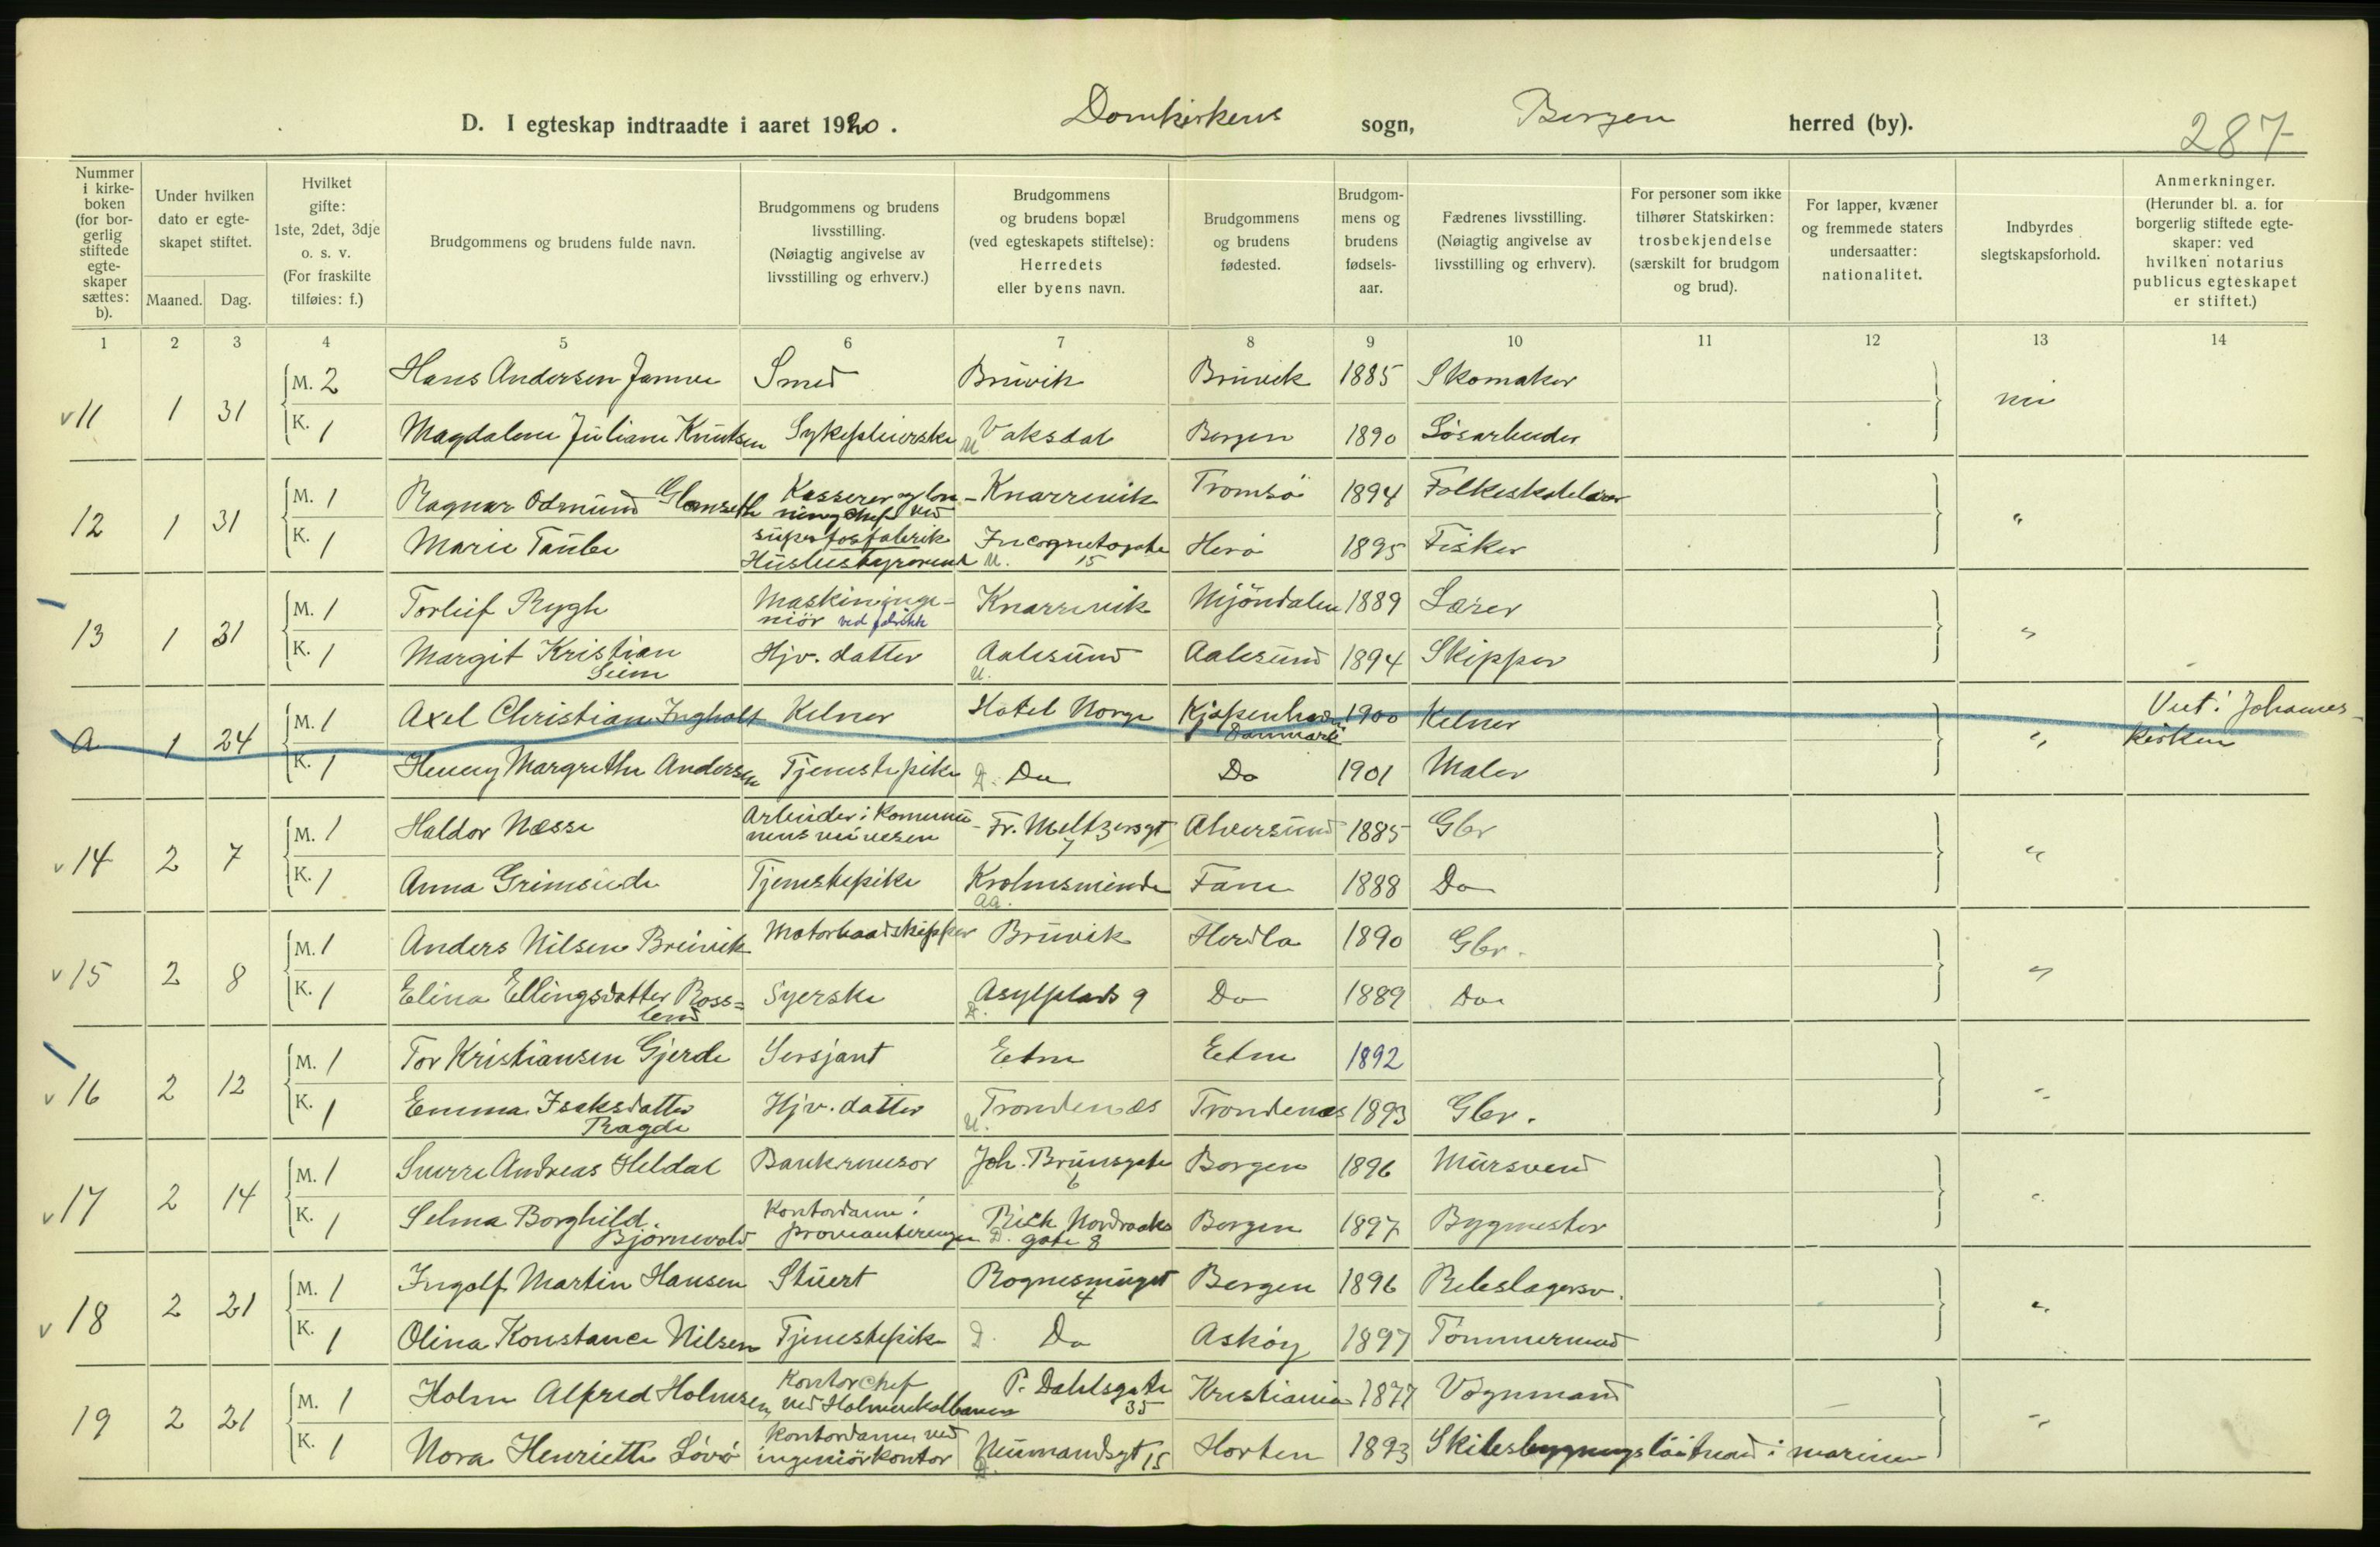 D. I egteskap indtraadte i aaret 1920. Domkirkens sogn, Bergen herred (by). 287
Nummer i kirke-boken (for bor-gerlig stiftede egte-skaper sættes: b).
Under hvilken dato er egte-skapet stiftet.
Maaned. Dag.
Hvilket gifte: 1ste, 2det, 3dje o. s. v. (For fraskilte tilføies: f.)
Brudgommens og brudens fulde navn.
Brudgommens og brudens livsstilling. (Nøiagtig angivelse av livsstilling og erhverv.)
Brudgommens og brudens bopæl (ved egteskapets stiftelse): Herredets eller byens navn.
Brudgommens og brudens fødested.
Brudgom-mens og brudens fødsels-aar.
Fædrenes livsstilling. (Nøiagtig angivelse av livsstilling og erhverv).
For personer som ikke tilhører Statskirken: trosbekjendelse (særskilt for brudgom og brud).
For lapper, kvæner og fremmede staters undersaatter: nationalitet.
Indbyrdes slegtskapsforhold.
Anmerkninger. (Herunder bl. a. for borgerlig stiftede egte-skaper: ved hvilken notarius publicus egteskapet er stiftet.)
1 2 3 4 5 6 7 8 9 10 11 12 13 14
v 11 1 31 M. 2 Hans Andersen Smed Bruvik Bruvik 1885 Skomaker nei
K. 1 Magdalene Juliane Knutsen Sykepleierske U Vaksdal Bergen 1890 Løsarbeider
12 1 31 M. 1 Ragnar Odmund Kasserer og ved superfosfabrik Knarrevik Tromsö 1894 Folkeskolelærer "
K. 1 Marie Taule Husbestyrerinde U. Incognitogate 15 Herö 1895 Fisker
13 1 31 M. 1 Torleif Rygh Maskininge-niör ved fabrikk Knarrevik Mjöndalen 1889 Lærer "
K. 1 Margit Kristian Seim Hjv. datter U. Aalesund Aalesund 1894 Skipper
a 1 24 M. 1 Axel Christian Ingholt Kelner Hotel Norge Kjøpenhavn Danmark 1900 Kelner " Viet i Johannes-kirken
K. 1 Henny Margrethe Andersen Tjenestepike D. Do Do 1901 Maler
v 14 2 7 M. 1 Haldor Næsse Arbeider i Kommu-nens veivesen Fr. Meltzersgt 7 Alversund 1885 Gbr "
K. 1 Anna Grimseide Tjenestepike Krohnsminde Aa. Fane 1888 Do
v 15 2 8 M. 1 Anders Nilsen Breivik Motorbaadskipper Bruvik Herdla 1890 Gbr. "
K. 1 Elina Ellingsdatter Ross=land Syerske D. Asylplads 9 Do 1889 Do
v 16 2 12 M. 1 Tor Kristiansen Gjerde Sersjant Etne Etne 1892 "
K. 1 Emma Isaksdatter Ragde Hjv. datter U. Trondenæs Trondenæs 1893 Gbr.
v 17 2 14 M. 1 Snorre Andreas Heldal Bankrevisor Joh. Brunsgate 6 Bergen 1896 Mursvend "
K. 1 Selma Borghild Bjørnevold Kontordame i provianteringen D. Rich Nordraaks gate 8 Bergen 1897 Bygmester
v 18 2 21 M. 1 Ingolf Martin Hansen Stuert 4 Bergen 1896 Rebslagersv. "
K. 1 Olina Konstance Nilsen Tjenestepike D. Do Askøy 1897 Tømmermand
19 2 21 M. 1 Holm Alfred Holmsen Kontorchef ved Holmenkolbanen P. Dahlsgate 35 Kristiania 1877 Vognmand "
K. 1 Nora Henriette Løvø Kontordame ved ingeniörkontor D. Neumandsgt 15 Horten 1893 Skibsbygningsløitnant i marinen